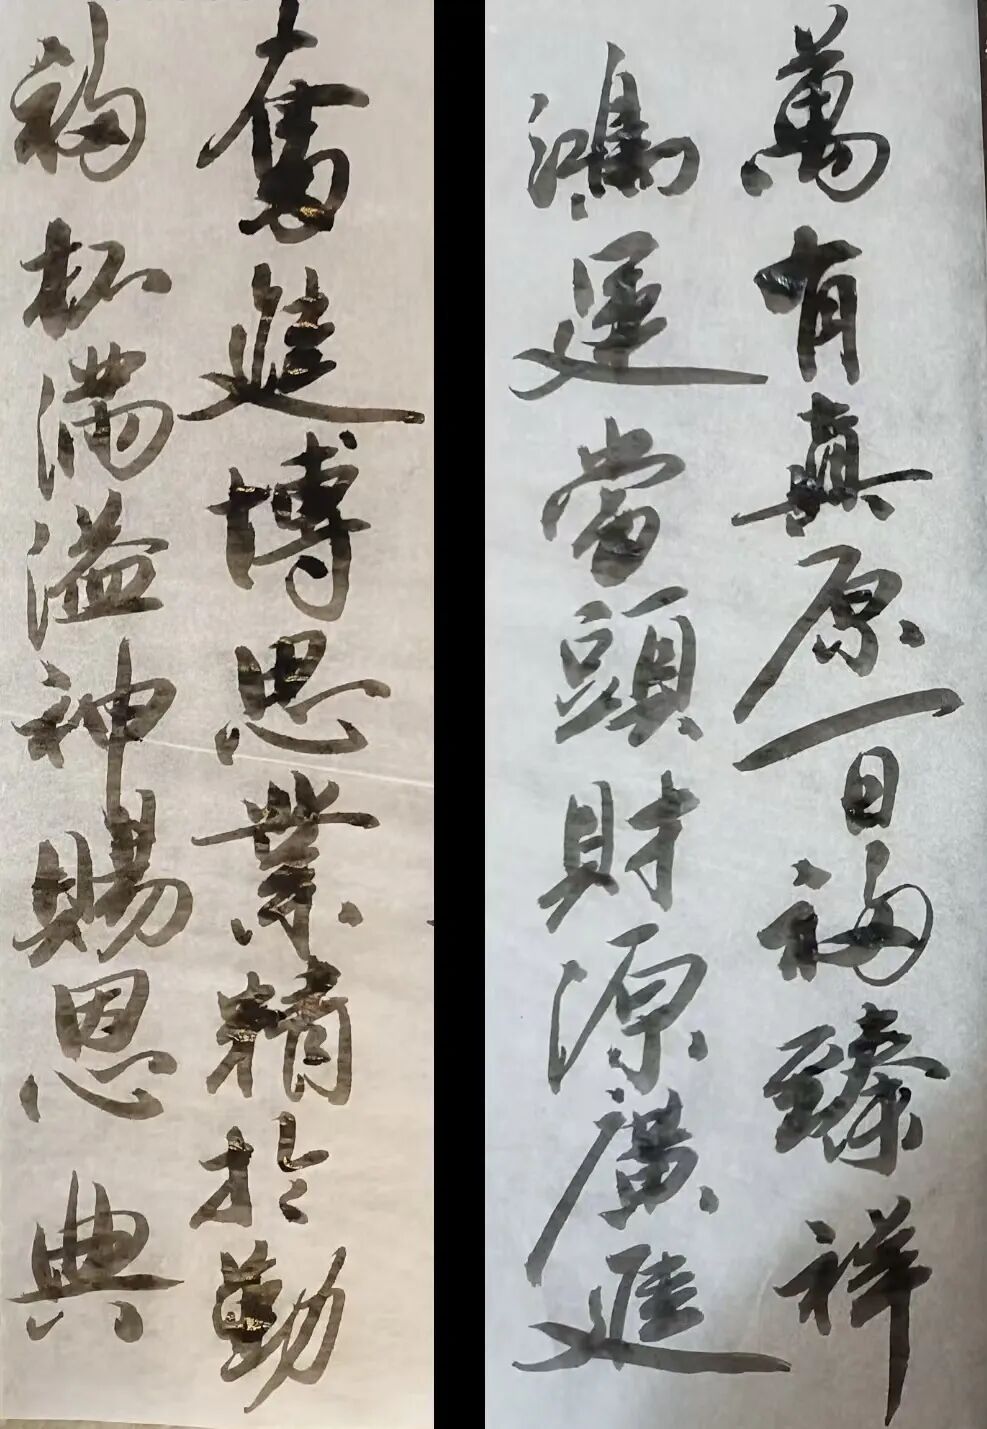 萬有真原一日福臻祥
鴻運當頭財源廣進
奮進博思業精於勤
福杯滿溢神賜恩典